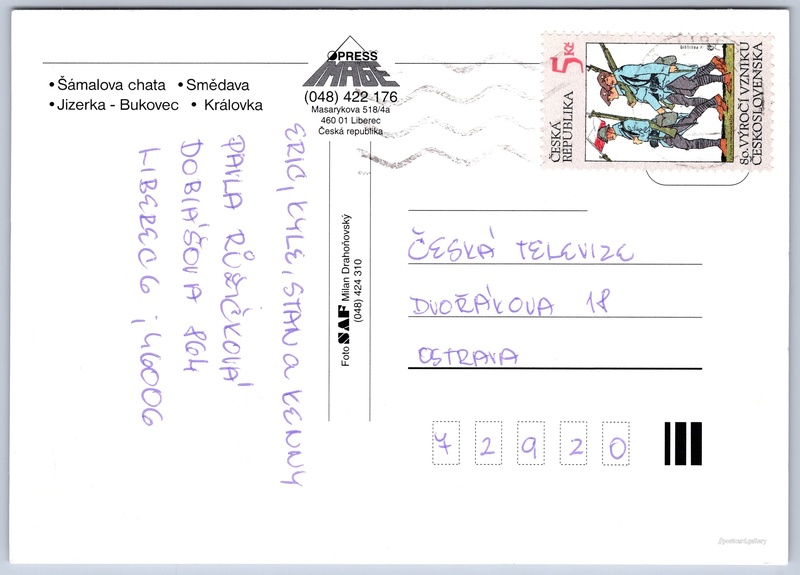 • Šámalova chata • Smědava
• Jizerka - Bukovec • Královka
PRESS
IMAGE
(048) 422 176
Masarykova 518/4a
460 01 Liberec
Česká republika
ČESKÁ
REPUBLIKA
5 Kč
80. VÝROČÍ VZNIKU
ČESKOSLOVENSKA
ERIC, KYLE, STAN A KENNY
PAVLA RŮŽIČKOVÁ
DOBIÁŠOVA 864
LIBEREC 6, 46006
Foto SAF Milan Drahoňovský
(048) 424 310
ČESKÁ TELEVIZE
DVOŘÁKOVA 18
OSTRAVA
72920
postcard.gallery